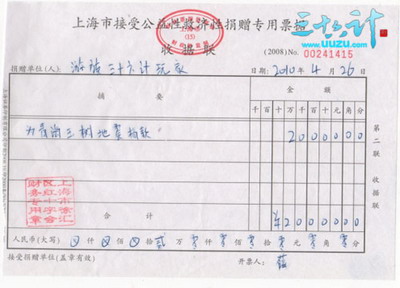 上海市接受公益性救济性捐赠专用票据
三十六计
www.uuzu.com
收据联
(2008) No. 00241415
捐赠单位(人): 游族三十六计玩家
日期: 2010 年 4 月 26 日
摘要
金额
千百十万千百十元角分
为青海玉树地震捐款
20000000
第二联
收据联
合计
¥20000000
人民币(大写) 仟 佰 拾 贰 万 零 仟 零 佰 零 拾 零 元 零 角 零 分
接受捐赠单位(盖章有效)
开票人:
上海市徐汇
区红十字会
财务专用章